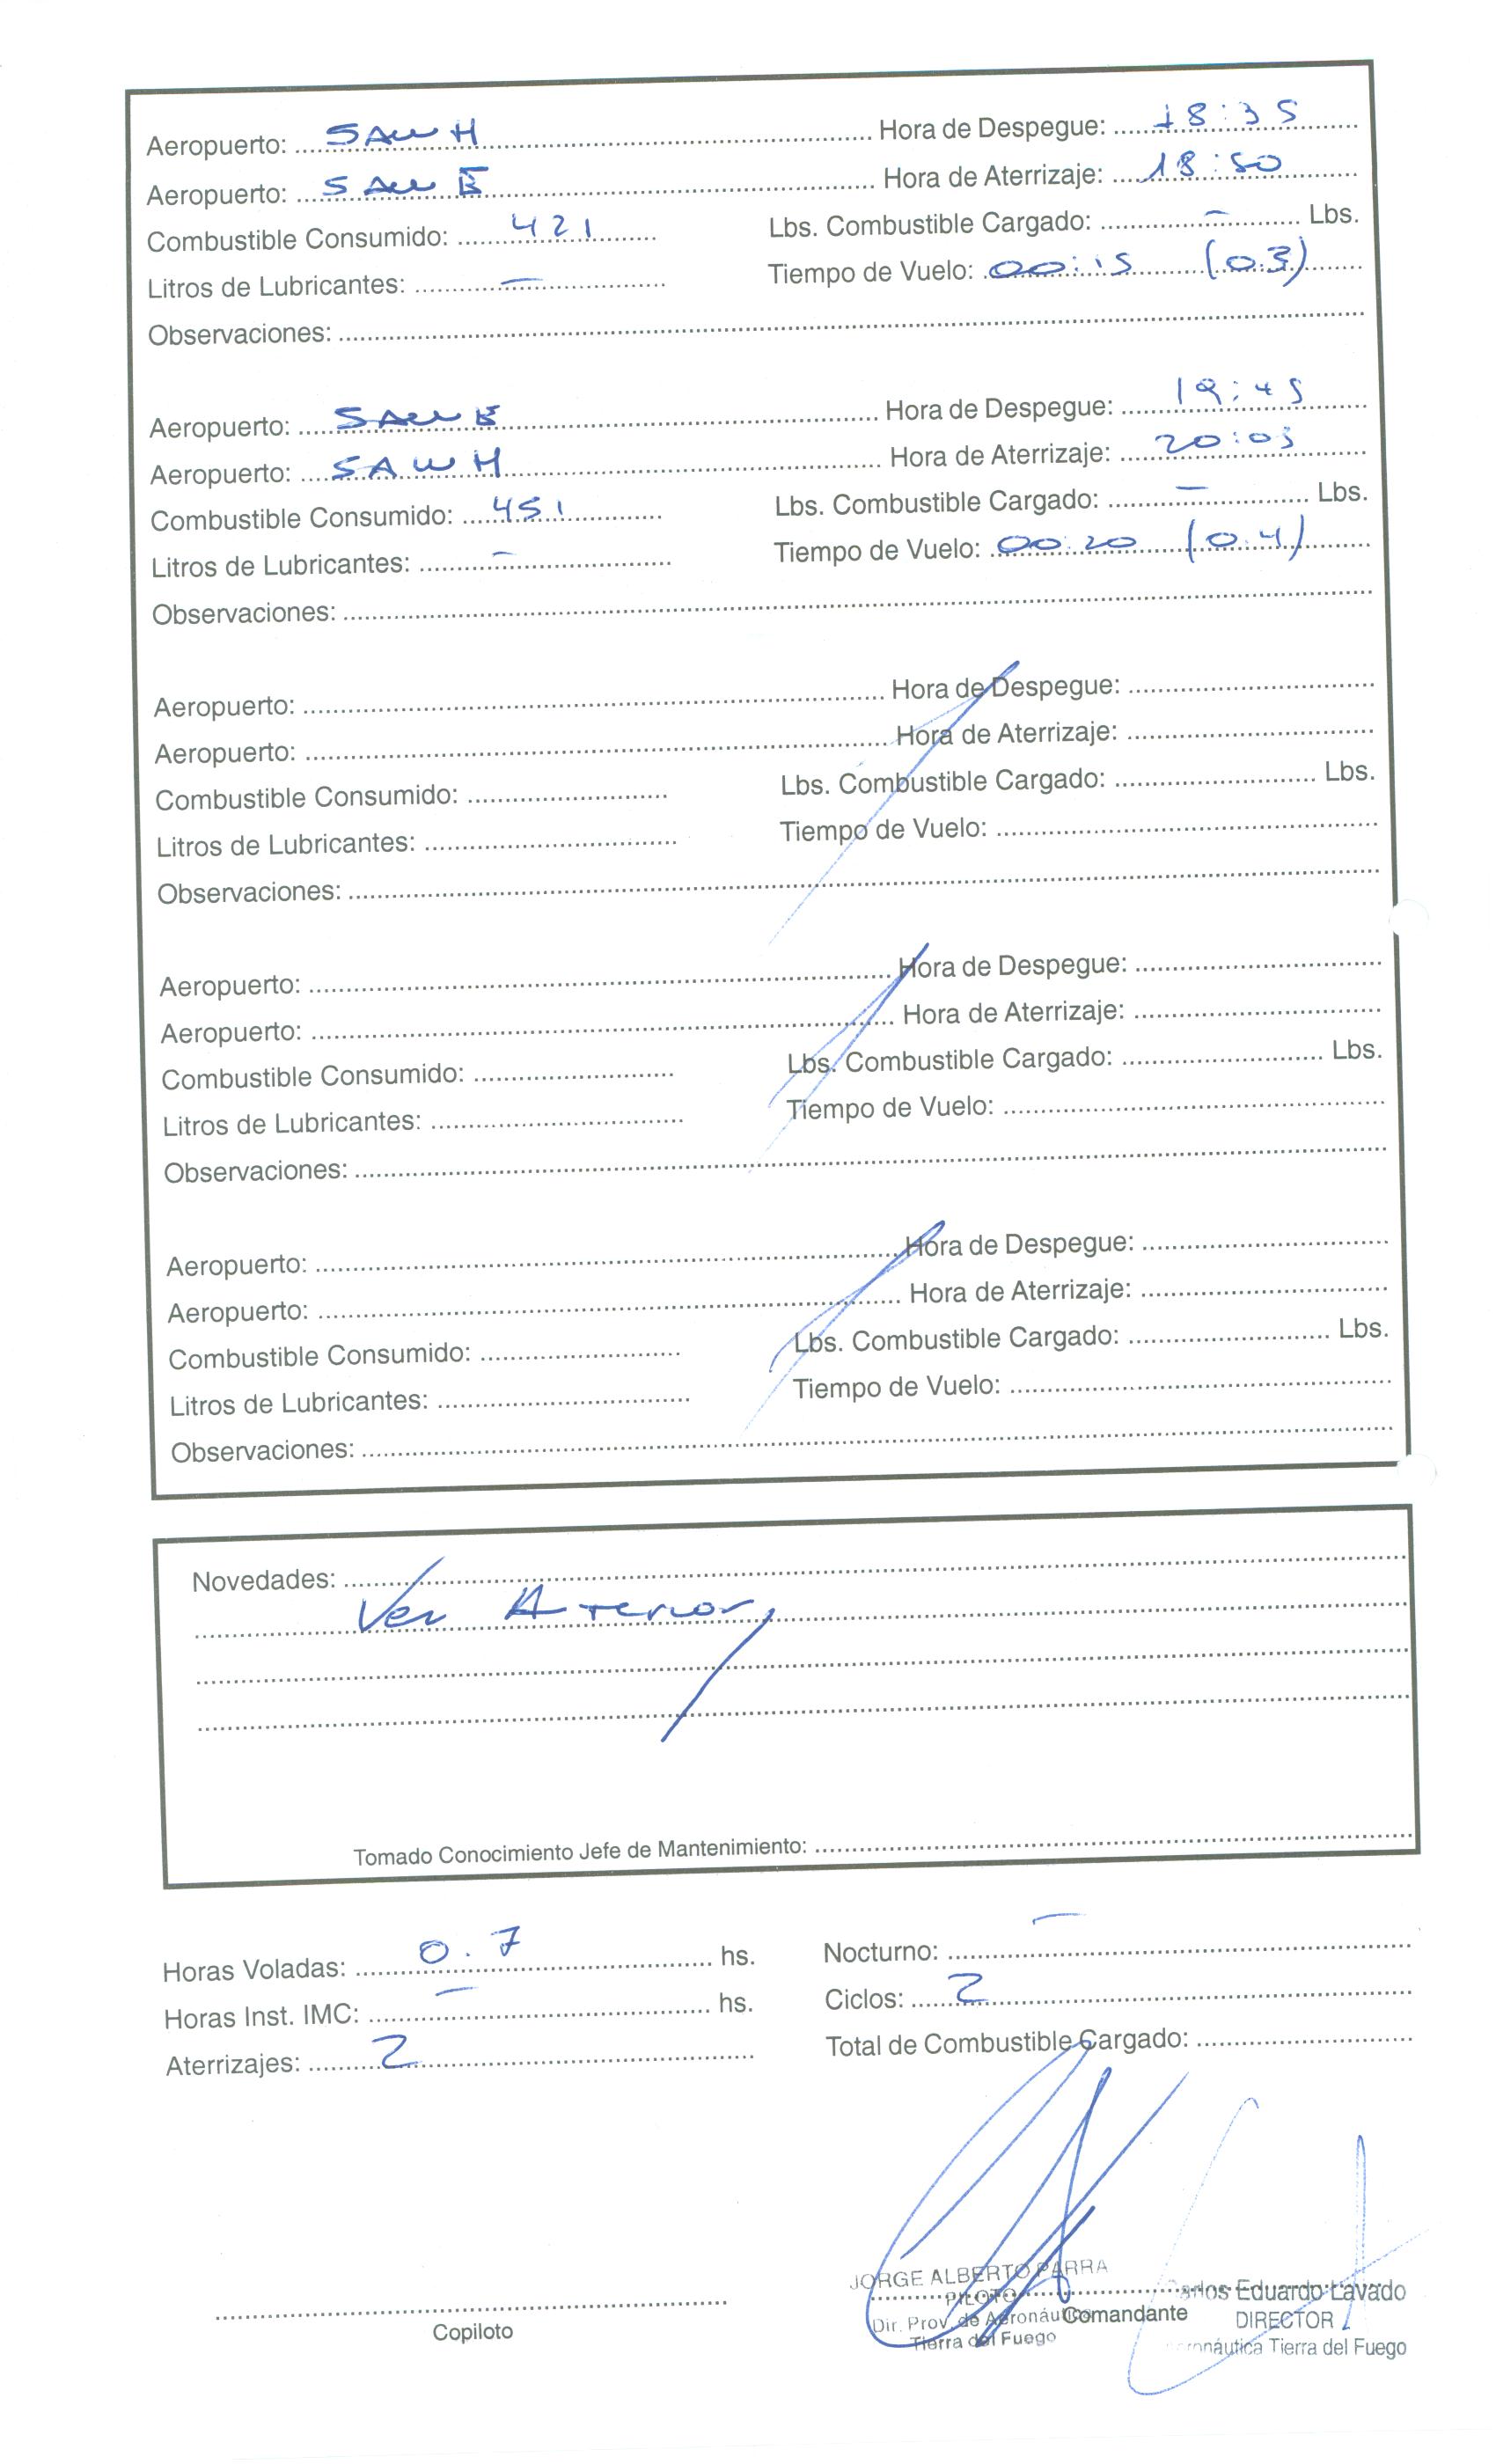 Aeropuerto: SAWH Hora de Despegue: 18:35
Aeropuerto: SAWE Hora de Aterrizaje: 18:50
Combustible Consumido: 421 Lbs. Combustible Cargado: – Lbs.
Litros de Lubricantes: – Tiempo de Vuelo: 00:15 (0.3)
Observaciones:
Aeropuerto: SAWE Hora de Despegue: 19:45
Aeropuerto: SAWH Hora de Aterrizaje: 20:05
Combustible Consumido: 451 Lbs. Combustible Cargado: – Lbs.
Litros de Lubricantes: – Tiempo de Vuelo: 00:20 (0.4)
Observaciones:
Aeropuerto: Hora de Despegue:
Aeropuerto: Hora de Aterrizaje:
Combustible Consumido: Lbs. Combustible Cargado: Lbs.
Litros de Lubricantes: Tiempo de Vuelo:
Observaciones:
Aeropuerto: Hora de Despegue:
Aeropuerto: Hora de Aterrizaje:
Combustible Consumido: Lbs. Combustible Cargado: Lbs.
Litros de Lubricantes: Tiempo de Vuelo:
Observaciones:
Aeropuerto: Hora de Despegue:
Aeropuerto: Hora de Aterrizaje:
Combustible Consumido: Lbs. Combustible Cargado: Lbs.
Litros de Lubricantes: Tiempo de Vuelo:
Observaciones:
Novedades:
Ver Aterior
Tomado Conocimiento Jefe de Mantenimiento:
Horas Voladas: 0.7 hs. Nocturno: –
Horas Inst. IMC: – hs. Ciclos: 2
Aterrizajes: 2 Total de Combustible Cargado:
JORGE ALBERTO PARRA
PILOTO Carlos Eduardo Lavado
Copiloto Dir. Prov. de Aeronáutica Comandante DIRECTOR
Tierra del Fuego Aeronáutica Tierra del Fuego